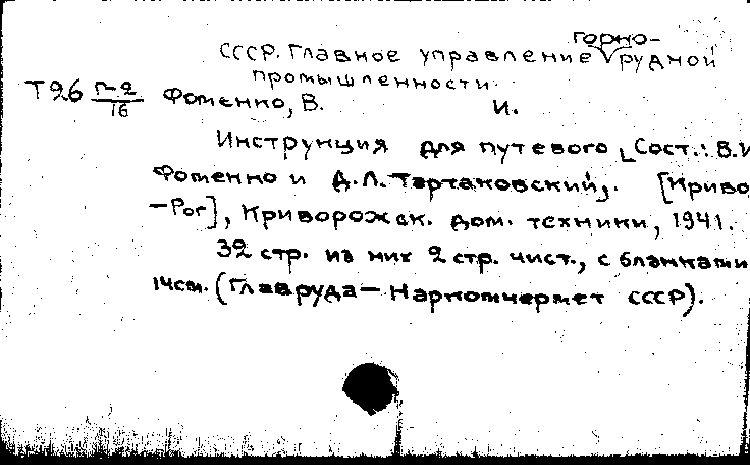 СССР. Главное управление горно-рудной
промышленности.
Т26 Г-2/16 Фоменко, В. И.
Инструкция для путевого [Сост.: В.И
Фоменко и Д.Л. Тартаковский]. [Криво
-Рог], Криворожск. дом. техники, 1941.
32 стр. из них 2 стр. чист., с бланками
14см. (Главруда - Наркомчермет СССР).